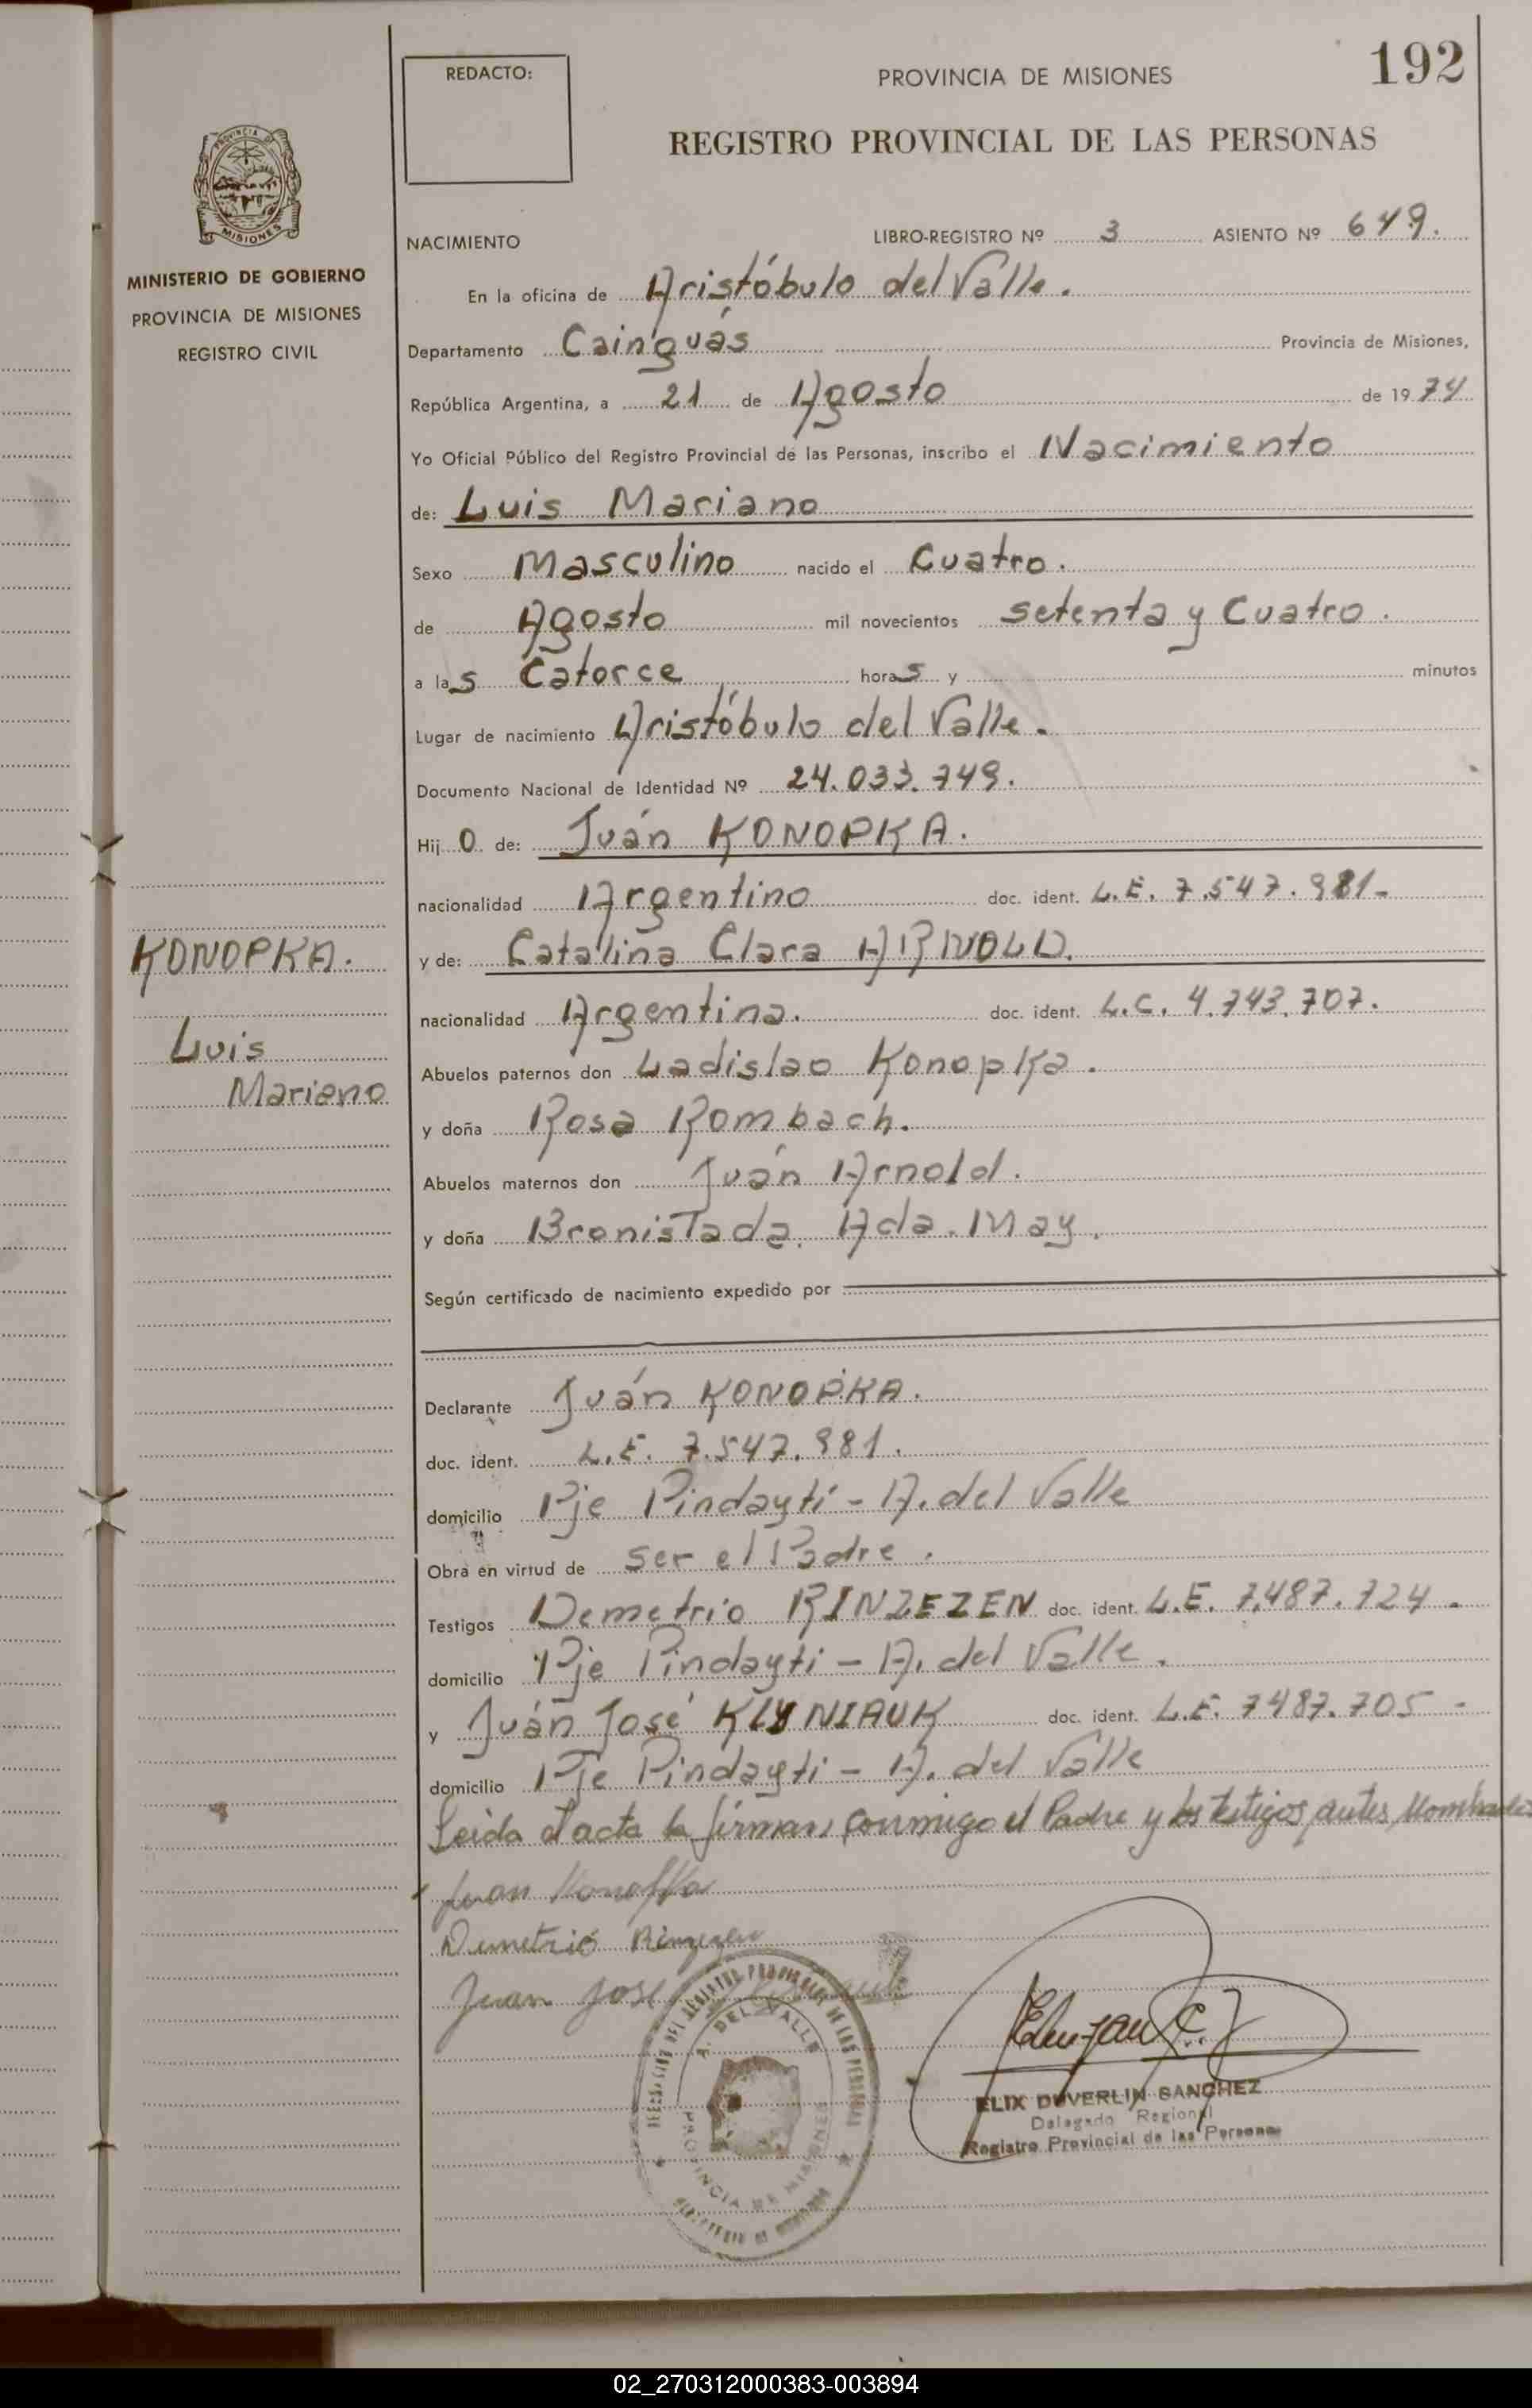 REDACTO:
PROVINCIA DE MISIONES
192
REGISTRO PROVINCIAL DE LAS PERSONAS
PROVINCIA DE
MISIONES
MINISTERIO DE GOBIERNO
PROVINCIA DE MISIONES
REGISTRO CIVIL
NACIMIENTO
LIBRO-REGISTRO Nº 3 ASIENTO Nº 649.
En la oficina de Aristóbulo del Valle.
Departamento Cainguás Provincia de Misiones,
República Argentina, a 21 de Agosto de 1974
Yo Oficial Público del Registro Provincial de las Personas, inscribo el Nacimiento
de: Luis Mariano
Sexo Masculino nacido el Cuatro.
de Agosto mil novecientos setenta y Cuatro.
a las Catorce horas y minutos
Lugar de nacimiento Aristóbulo del Valle.
Documento Nacional de Identidad Nº 24.033.749.
Hijo de: Juán KONOPKA.
nacionalidad Argentino doc. ident. L.E. 7.547.981-
y de: Catalina Clara ARNOLD.
nacionalidad Argentina. doc. ident. L.C. 4.743.707.
Abuelos paternos don Ladislao Konopka.
y doña Rosa Rombach.
Abuelos maternos don Juán Arnold.
y doña Bronistada. Ada. May.
Según certificado de nacimiento expedido por
Declarante Juán KONOPKA.
doc. ident. L.E. 7.547.981.
domicilio Pje Pindayti - A. del Valle
Obra en virtud de ser el Padre.
Testigos Demetrio RINZEZEN doc. ident. L.E. 7.487.724-
domicilio Pje Pindayti - A. del Valle.
y Juán José KLYNIAUK doc. ident. L.E. 7487.705-
domicilio Pje Pindayti - A. del Valle
Leida el acta la firman conmigo el Padre y los testigos antes Nombrados
KONOPKA.
Luis
Mariano
Juan Konopka
Demetrio Rinzezen
Juan José
A. DEL VALLE
PROVINCIA DE MISIONES
ELIX DUVERLIN SANCHEZ
Delegado Regional
Registro Provincial de las Personas
02_270312000383-003894